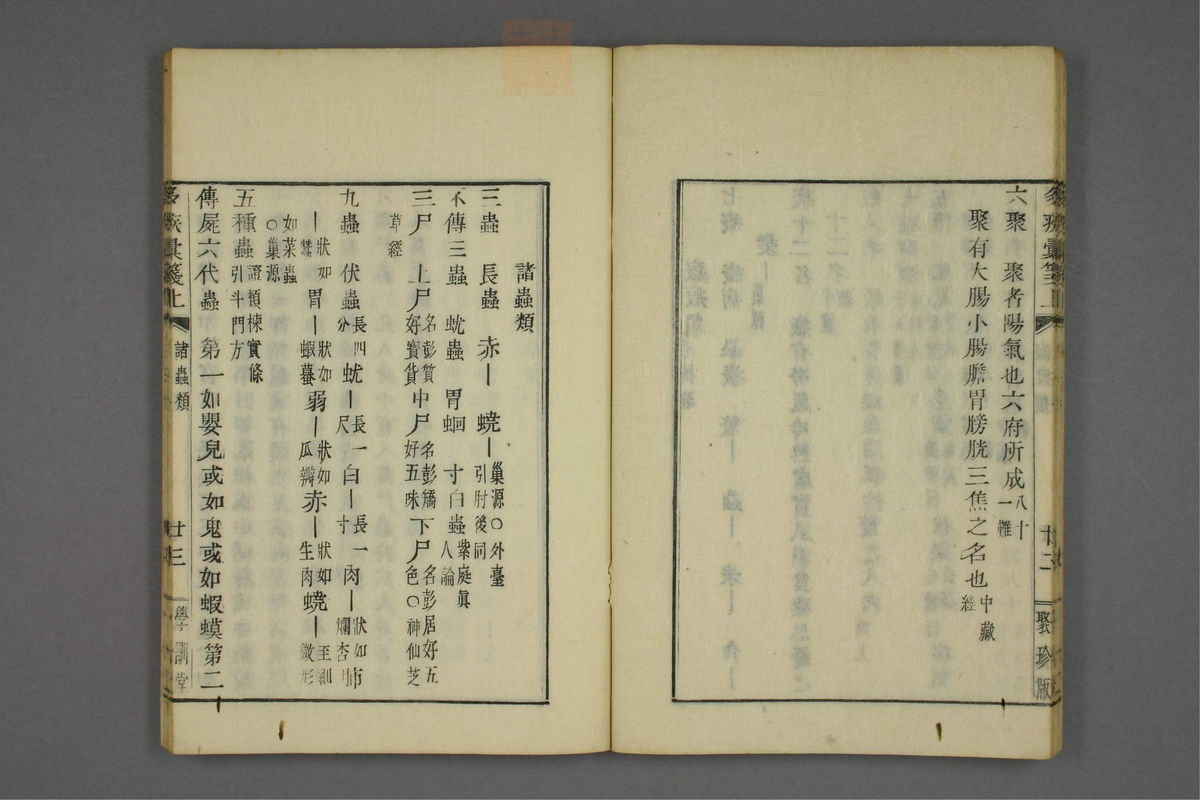 六聚　聚者陽氣也六府所成八十一難
聚有大腸小腸膽胃膀胱三焦之名也中藏經
廿二　聚珍版
諸蟲類
三蟲　長蟲　赤｜　蟯｜巢源〇外臺引肘後同
不傳三蟲　蚘蟲　胃蛔　寸白蟲紫庭眞人論
三尸　上尸名彭質好寶貨中尸名彭矯好五味下尸名彭居好五色〇神仙芝
草經
九蟲　伏蟲長四分蚘｜長一尺白｜長一寸肉｜狀如爛杏肺｜
｜狀如胃｜狀如蝦蟇弱｜狀如瓜瓣赤｜狀如生肉蟯｜至細微形
如菜蟲〇巢源
五種蟲證類楝實條引斗門方
傳屍六代蟲　第一如嬰兒或如鬼或如蝦蟆第二
諸蟲類　廿三　學訓堂